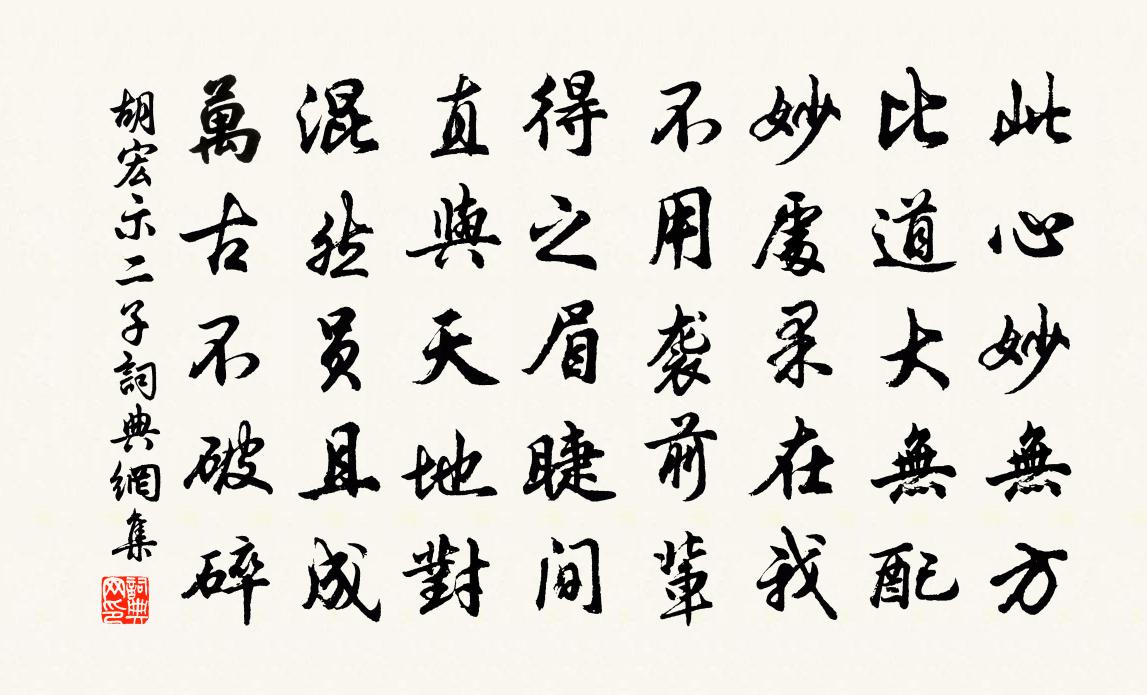 此心妙無方
比道大無配
妙處果在我
不用襲前輩
得之眉睫間
直與天地對
混然員且成
萬古不破碎
胡宏示二子詞典網集
詞典网印